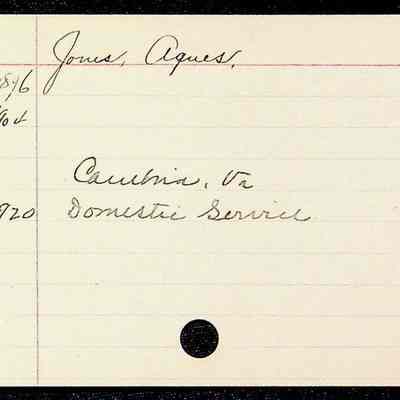 Jones, Agnes.
Cambria, Va
920 Domestic Service